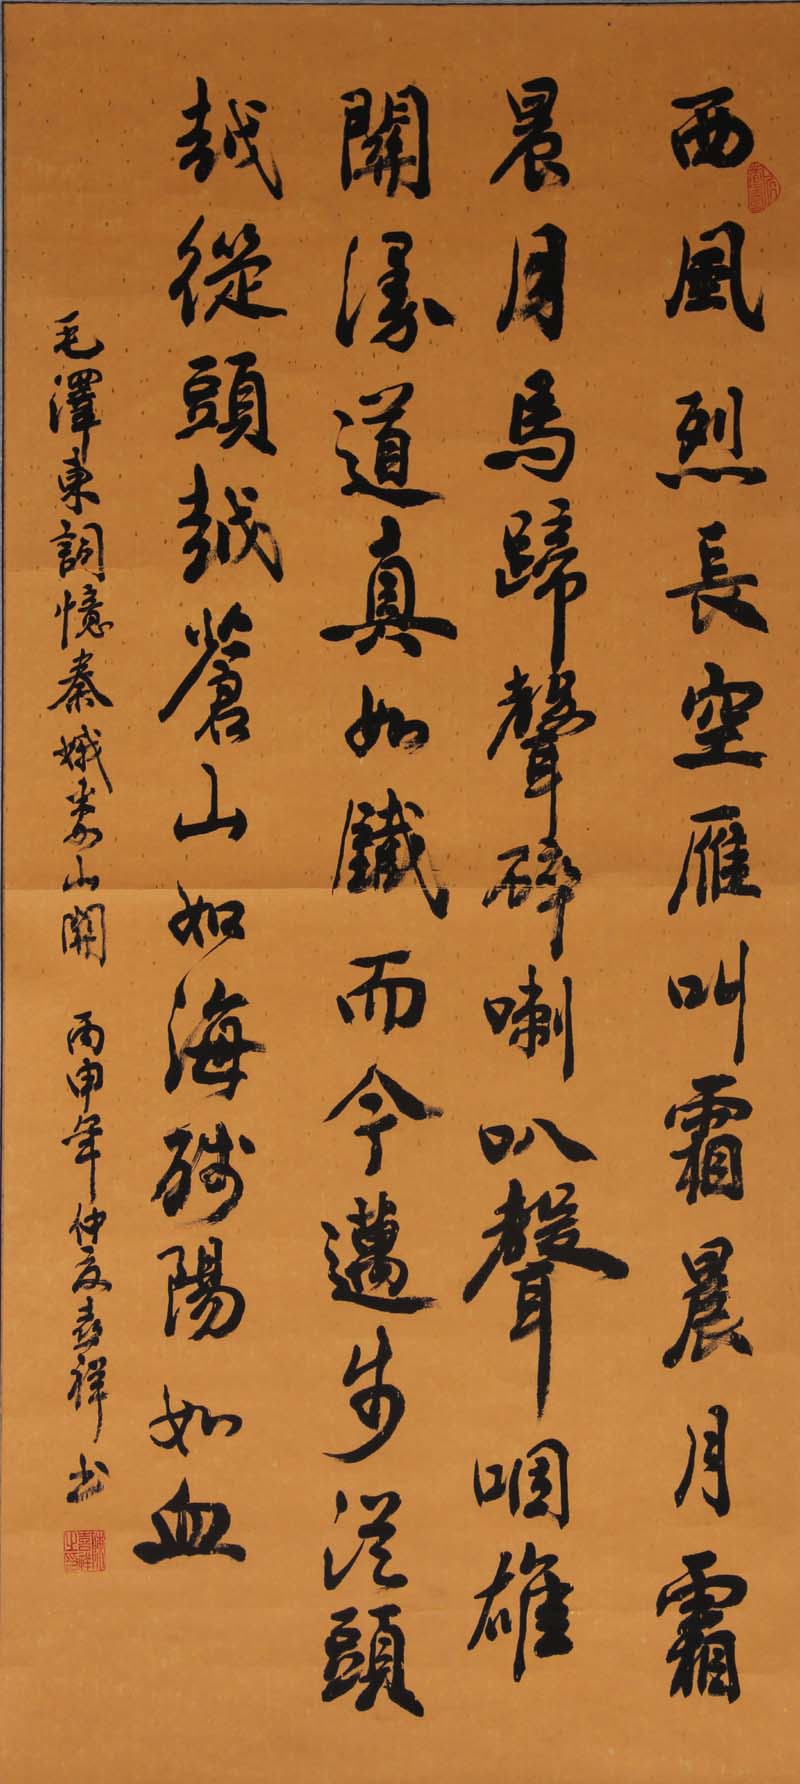 西風烈長空雁叫霜晨月霜
晨月馬蹄聲碎喇叭聲咽雄
關漫道真如鐵而今邁步從頭
越從頭越蒼山如海殘陽如血
毛澤東詞憶秦娥婁山關 丙申年仲夏喜祥书